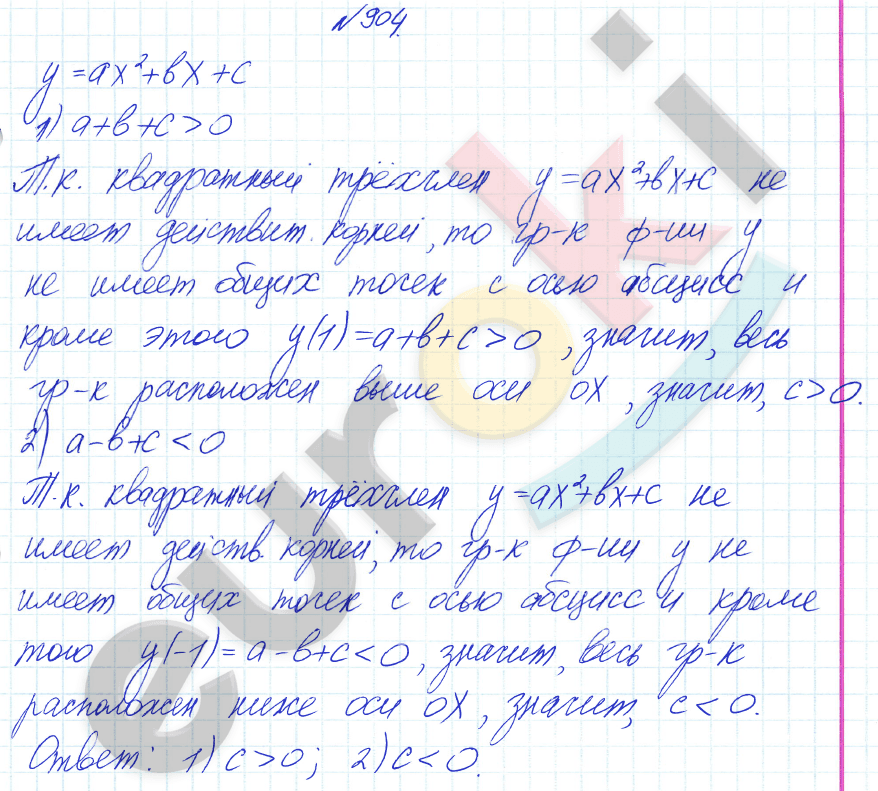 №904.
y = ax²+bx+c
1) a+b+c>0
Т.к. квадратный трёхчлен y=ax²+bx+c не
имеет действит. корней, то гр-к ф-ии y
не имеет общих точек с осью абсцисс и
кроме этого y(1)=a+b+c>0, значит, весь
гр-к расположен выше оси OX, значит, c>0.
2) a-b+c<0
Т.к. квадратный трёхчлен y=ax²+bx+c не
имеет действ. корней, то гр-к ф-ии y не
имеет общих точек с осью абсцисс и кроме
того y(-1)=a-b+c<0, значит, весь гр-к
расположен ниже оси OX, значит, c<0.
Ответ: 1) c>0; 2) c<0.
euroki